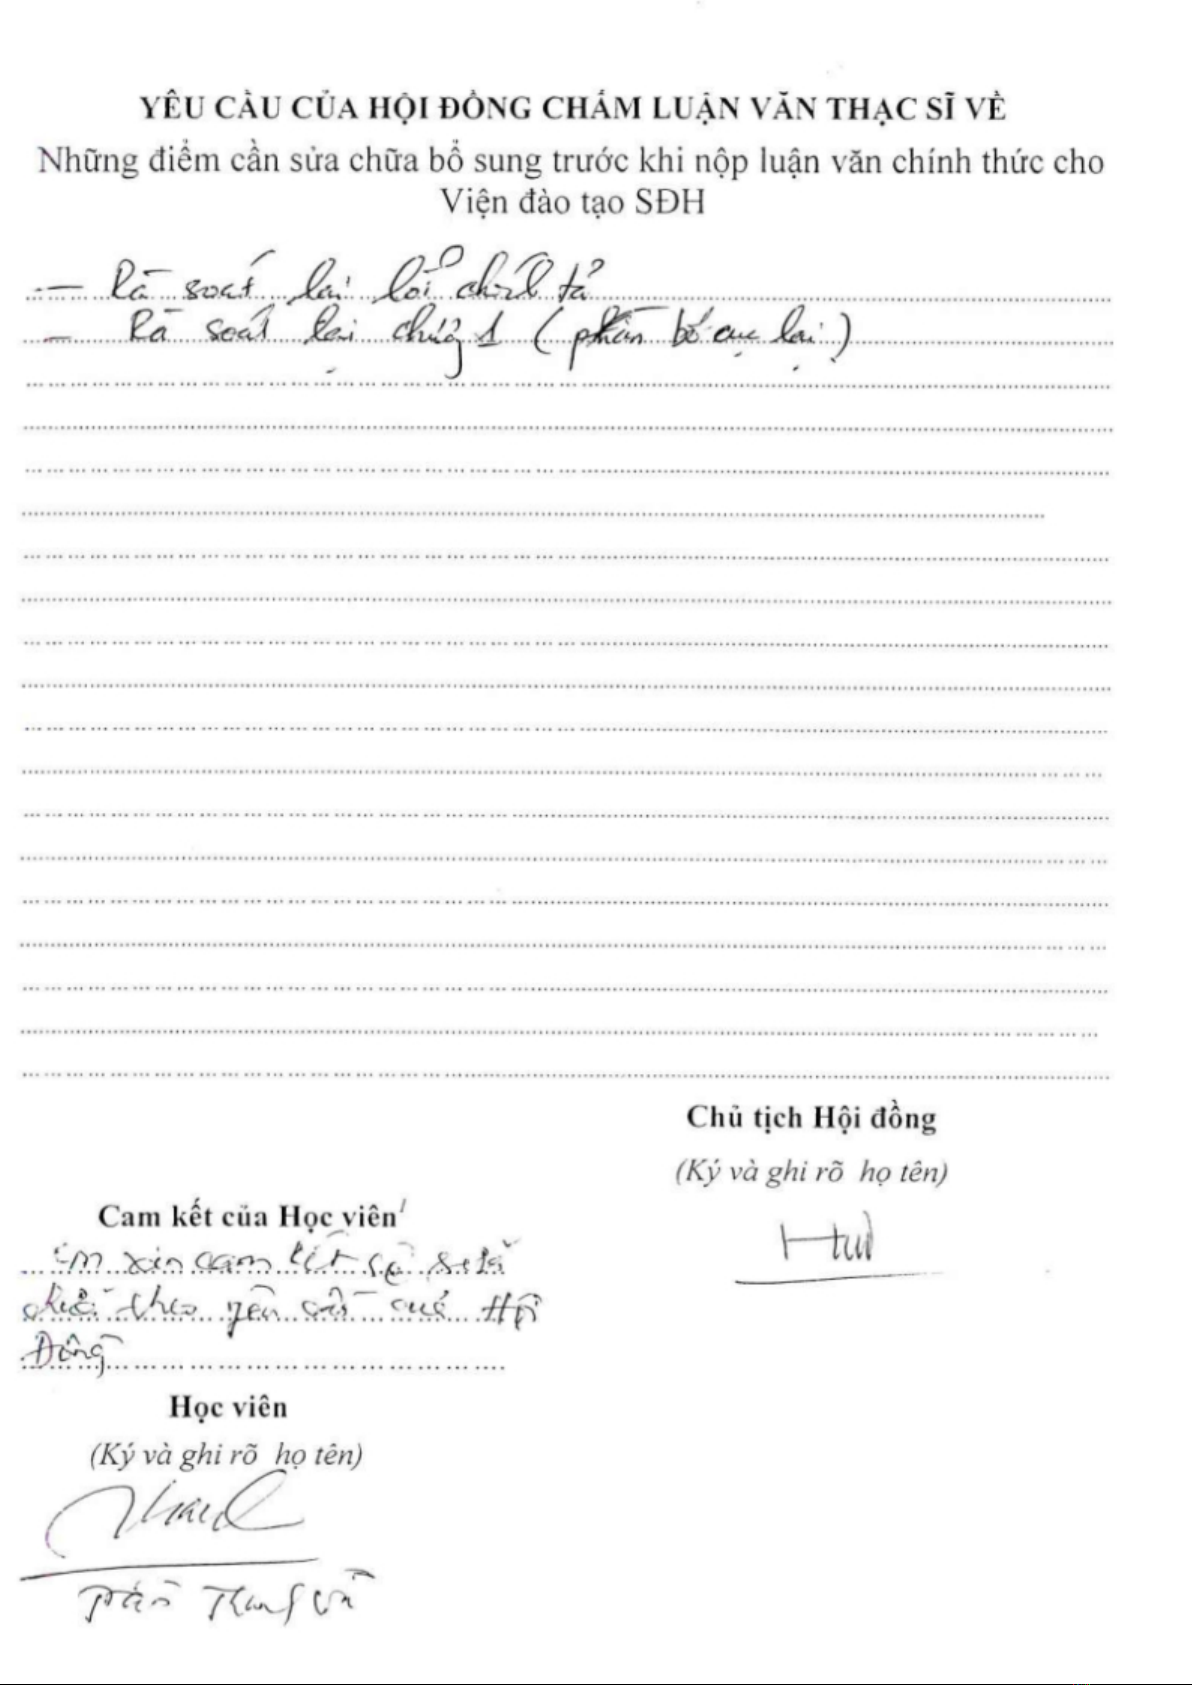 YÊU CẦU CỦA HỘI ĐỒNG CHẤM LUẬN VĂN THẠC SĨ VỀ
Những điểm cần sửa chữa bổ sung trước khi nộp luận văn chính thức cho
Viện đào tạo SĐH
— Rà soát lại lỗi chính tả
— Rà soát lại chương 1 (phần bố cục lại)
Chủ tịch Hội đồng
(Ký và ghi rõ họ tên)
Cam kết của Học viên¹
Em xin cam kết sẽ sửa
chữa theo yêu cầu quý Hội
Đồng
Học viên
(Ký và ghi rõ họ tên)